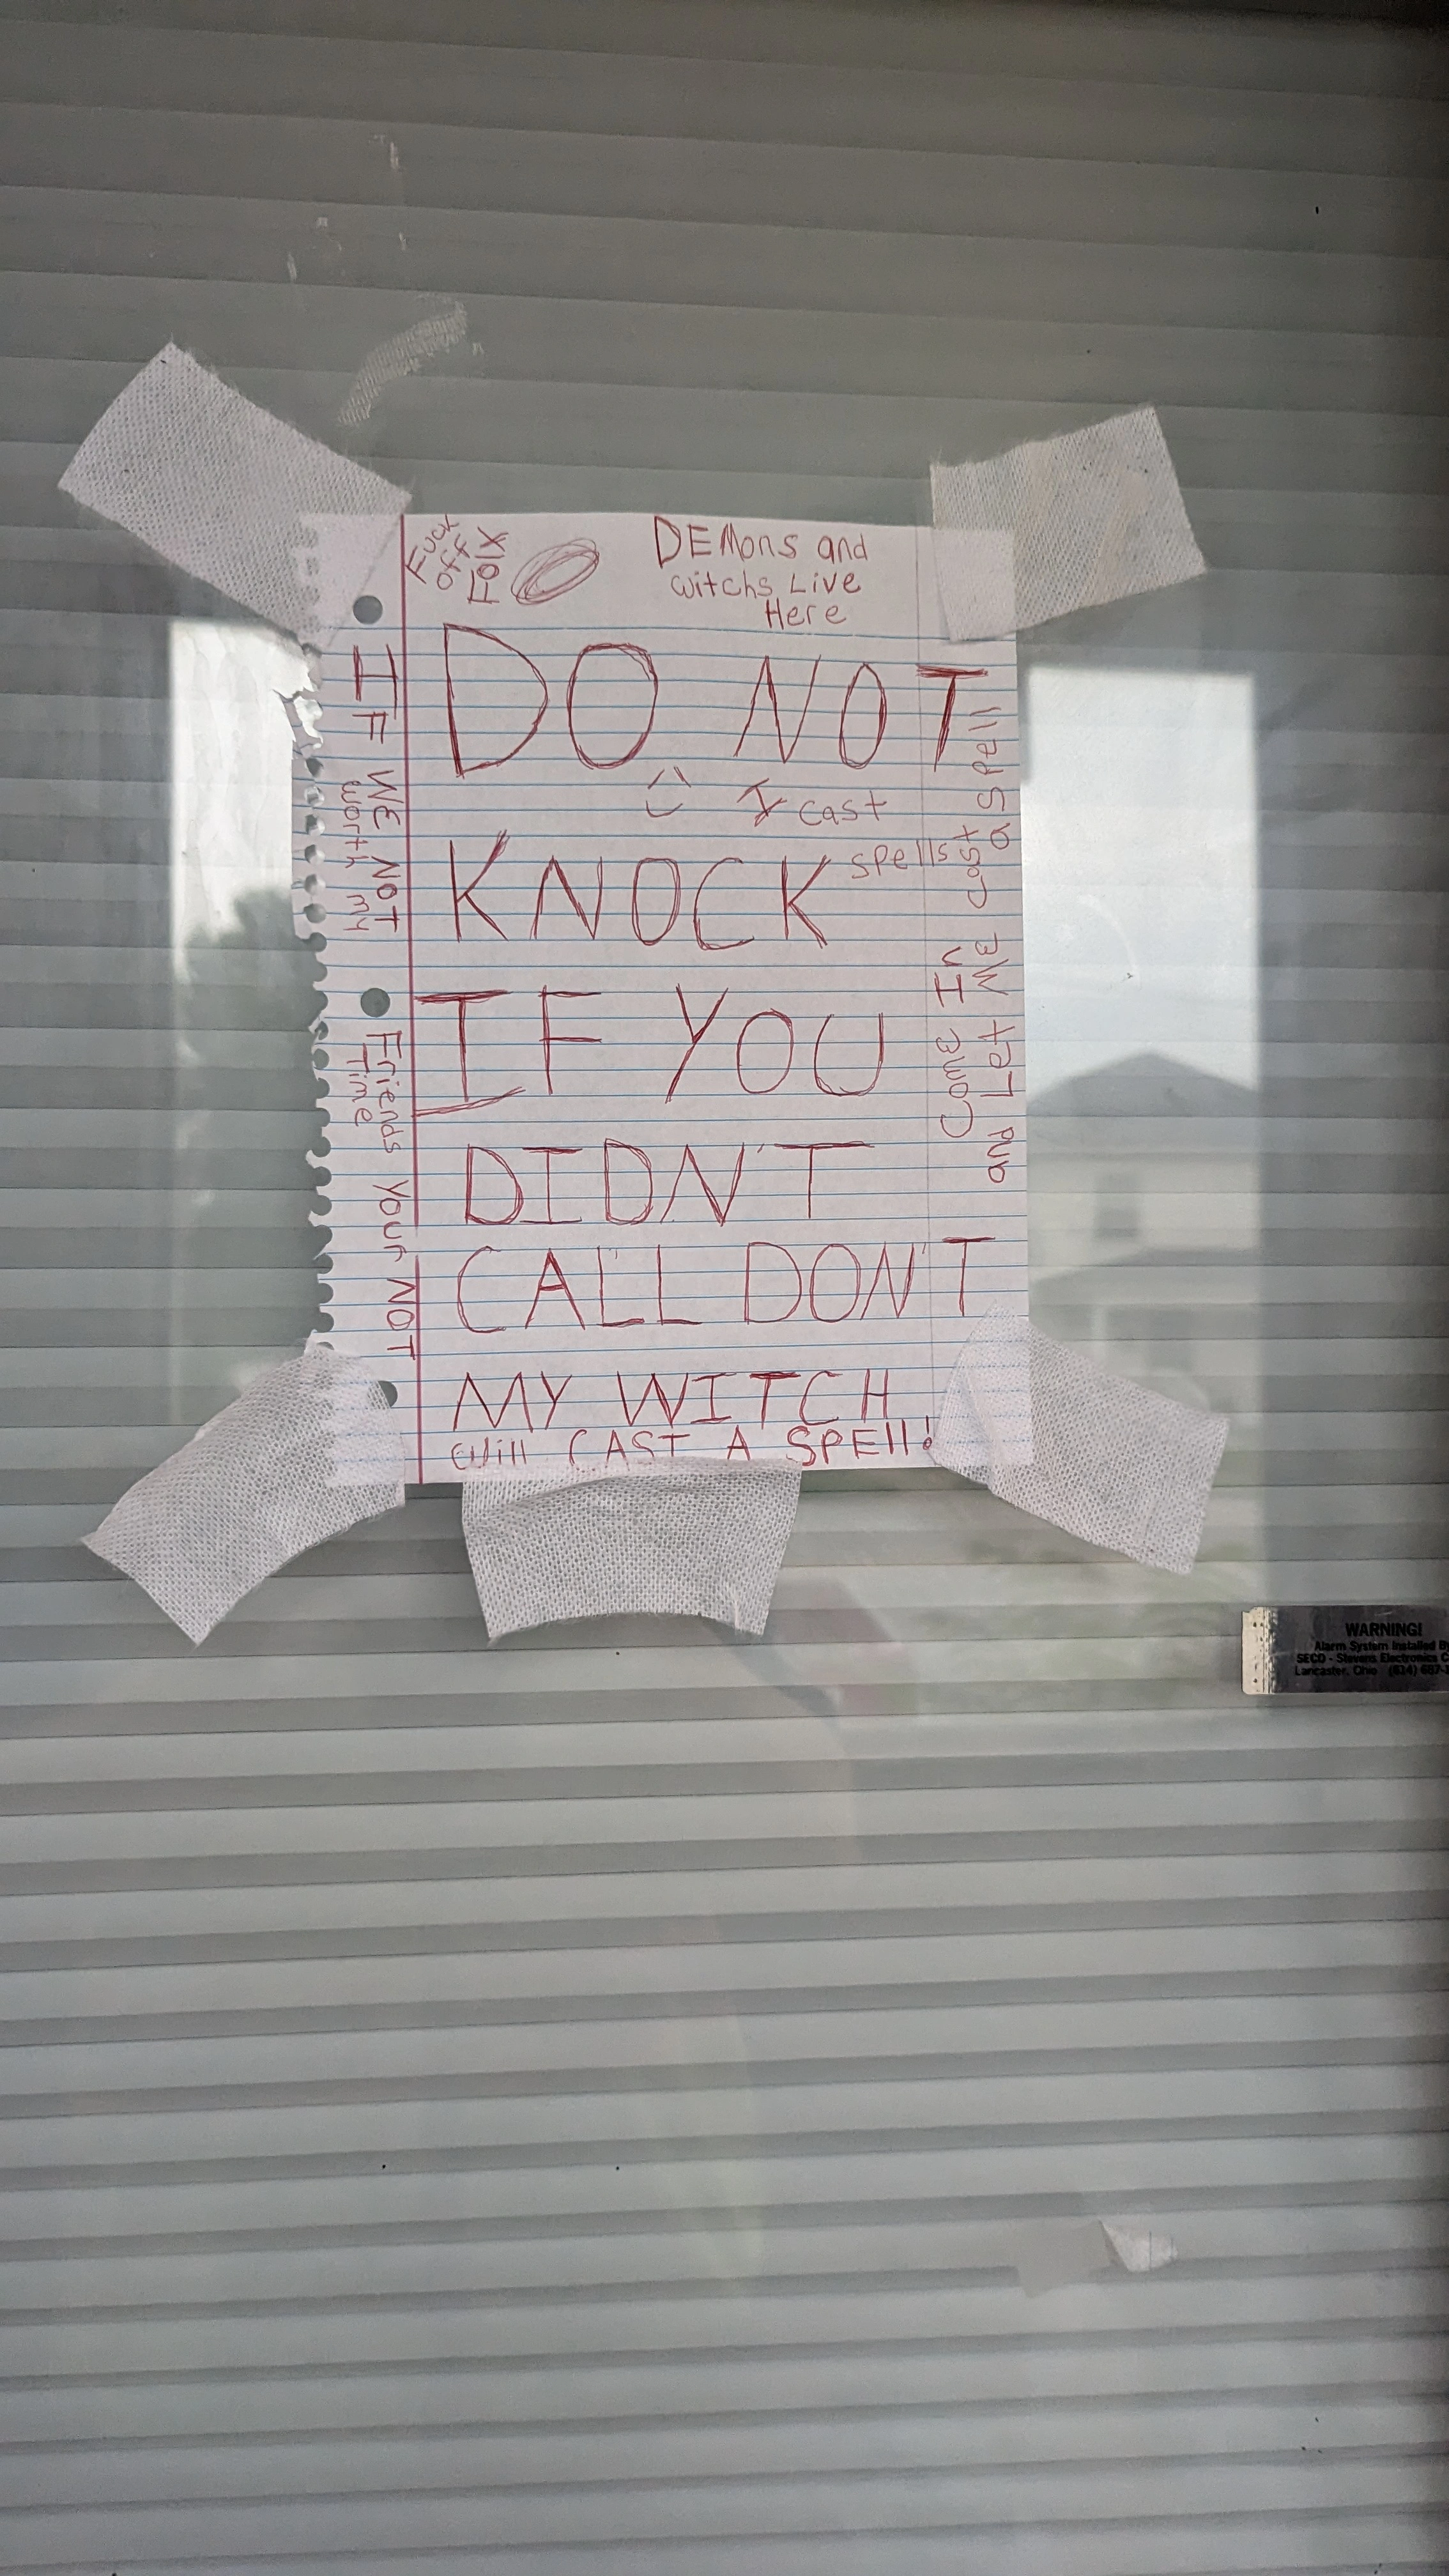 Fuck
off
Folx
DEMons and
witchs Live
Here
DO NOT
I cast
spells
KNOCK
IF YOU
DIDN'T
CALL DON'T
MY WITCH
will CAST A SPEll!
IF WE NOT Friends Your NOT
worth my Time
Come In
and Let ME cast a spell
WARNING!
Alarm System Installed By
SECO - Stevens Electronics
Lancaster, Ohio (614)